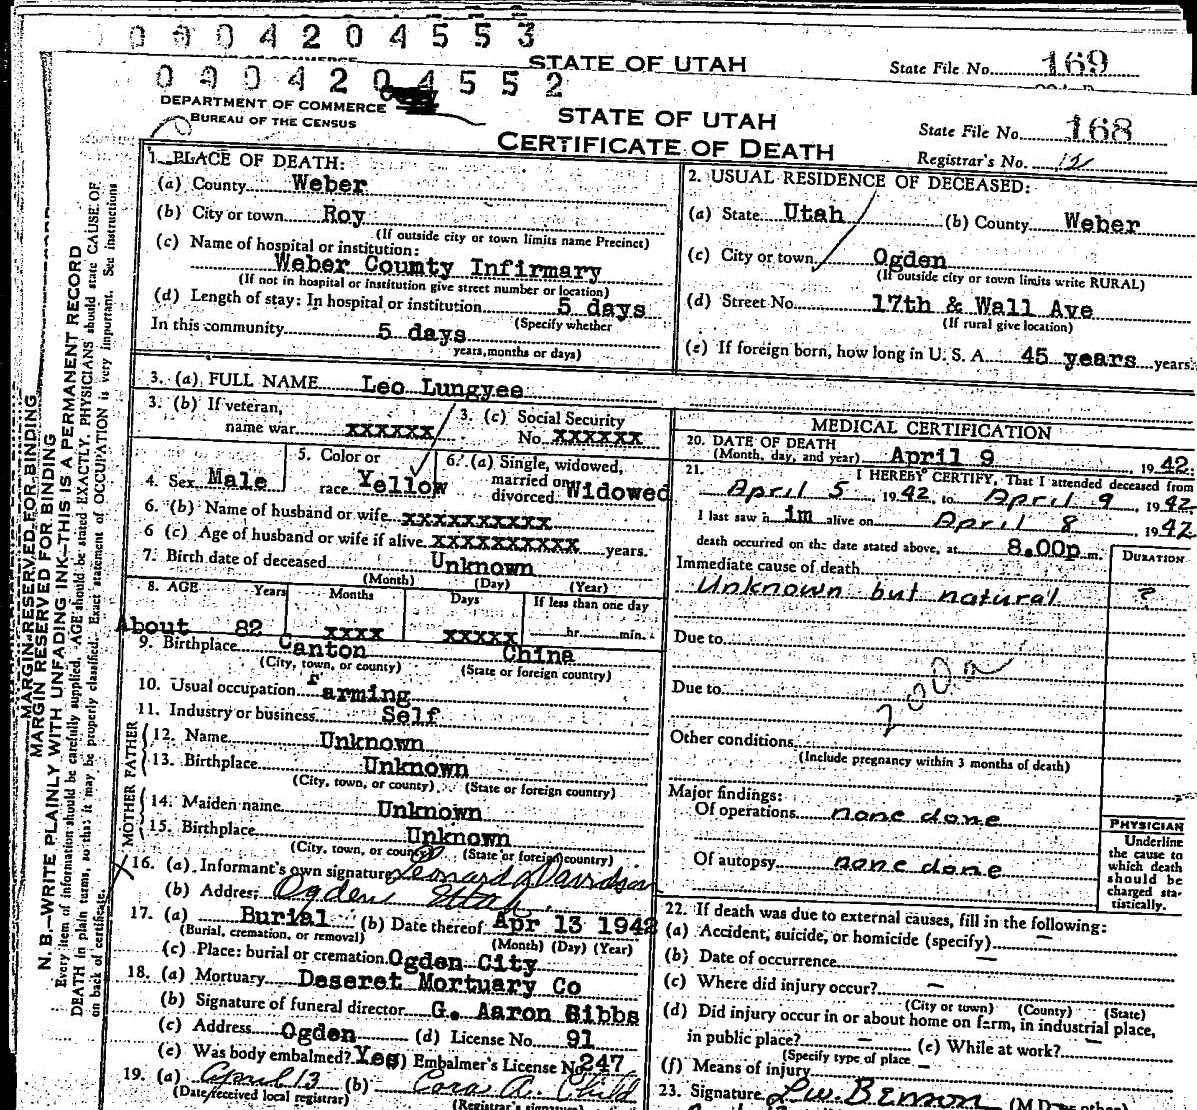 0 0 0 4 2 0 4 5 5 3
STATE OF UTAH
State File No. 169
0 0 0 4 2 0 4 5 5 2
DEPARTMENT OF COMMERCE
BUREAU OF THE CENSUS
STATE OF UTAH
CERTIFICATE OF DEATH
State File No. 168
Registrar's No. 121
MARGIN RESERVED FOR BINDING
MARGIN RESERVED FOR BINDING
N. B.—WRITE PLAINLY WITH UNFADING INK—THIS IS A PERMANENT RECORD
Every item of information should be carefully supplied. AGE should be stated EXACTLY. PHYSICIANS should state CAUSE OF
DEATH in plain terms, so that it may be properly classified. Exact statement of OCCUPATION is very important. See instructions
on back of certificate.
1. PLACE OF DEATH:
(a) County Weber
(b) City or town Roy
(If outside city or town limits name Precinct)
(c) Name of hospital or institution:
Weber County Infirmary
(If not in hospital or institution give street number or location)
(d) Length of stay: In hospital or institution 5 days
(Specify whether
In this community 5 days
years, months or days)
2. USUAL RESIDENCE OF DECEASED:
(a) State Utah (b) County Weber
(c) City or town Ogden
(If outside city or town limits write RURAL)
(d) Street No. 17th & Wall Ave
(If rural give location)
(e) If foreign born, how long in U. S. A. 45 years years.
3. (a) FULL NAME Leo Lungyee
3. (b) If veteran,
name war xxxxxx
3. (c) Social Security
No. xxxxxx
4. Sex Male
5. Color or
race Yellow
6. (a) Single, widowed,
married or
divorced Widowed
6. (b) Name of husband or wife xxxxxxxxxx
6 (c) Age of husband or wife if alive xxxxxxxxxx years.
7. Birth date of deceased Unknown
(Month) (Day) (Year)
8. AGE Years Months Days If less than one day
About 82 xxxx xxxxx hr. min.
9. Birthplace Canton China
(City, town, or county) (State or foreign country)
10. Usual occupation Farming
11. Industry or business Self
FATHER
12. Name Unknown
13. Birthplace Unknown
(City, town, or county) (State or foreign country)
MOTHER
14. Maiden name Unknown
15. Birthplace Unknown
(City, town, or county) (State or foreign country)
16. (a) Informant's own signature Leonard Davidson
(b) Address Ogden Utah
17. (a) Burial (b) Date thereof Apr 13 1942
(Burial, cremation, or removal) (Month) (Day) (Year)
(c) Place: burial or cremation Ogden City
18. (a) Mortuary Deseret Mortuary Co
(b) Signature of funeral director G. Aaron Bibbs
(c) Address Ogden (d) License No. 91
(e) Was body embalmed? Yes Embalmer's License No. 247
19. (a) April 13 (b) Cora A. Child
(Date received local registrar) (Registrar's signature)
MEDICAL CERTIFICATION
20. DATE OF DEATH
(Month, day, and year) April 9, 1942.
21. I HEREBY CERTIFY, That I attended deceased from
April 5, 1942, to April 9, 1942.
I last saw him alive on April 8 1942
death occurred on the date stated above, at 8.00p m.
DURATION
Immediate cause of death
Unknown but natural ?
Due to
Due to
200a
Other conditions
(Include pregnancy within 3 months of death)
Major findings:
Of operations none done
Of autopsy none done
PHYSICIAN
Underline
the cause to
which death
should be
charged sta-
tistically.
22. If death was due to external causes, fill in the following:
(a) Accident, suicide, or homicide (specify) —
(b) Date of occurrence —
(c) Where did injury occur? —
(City or town) (County) (State)
(d) Did injury occur in or about home on farm, in industrial place,
in public place? — (e) While at work? —
(Specify type of place
(f) Means of injury —
23. Signature L. W. Benson (M.D. or other)